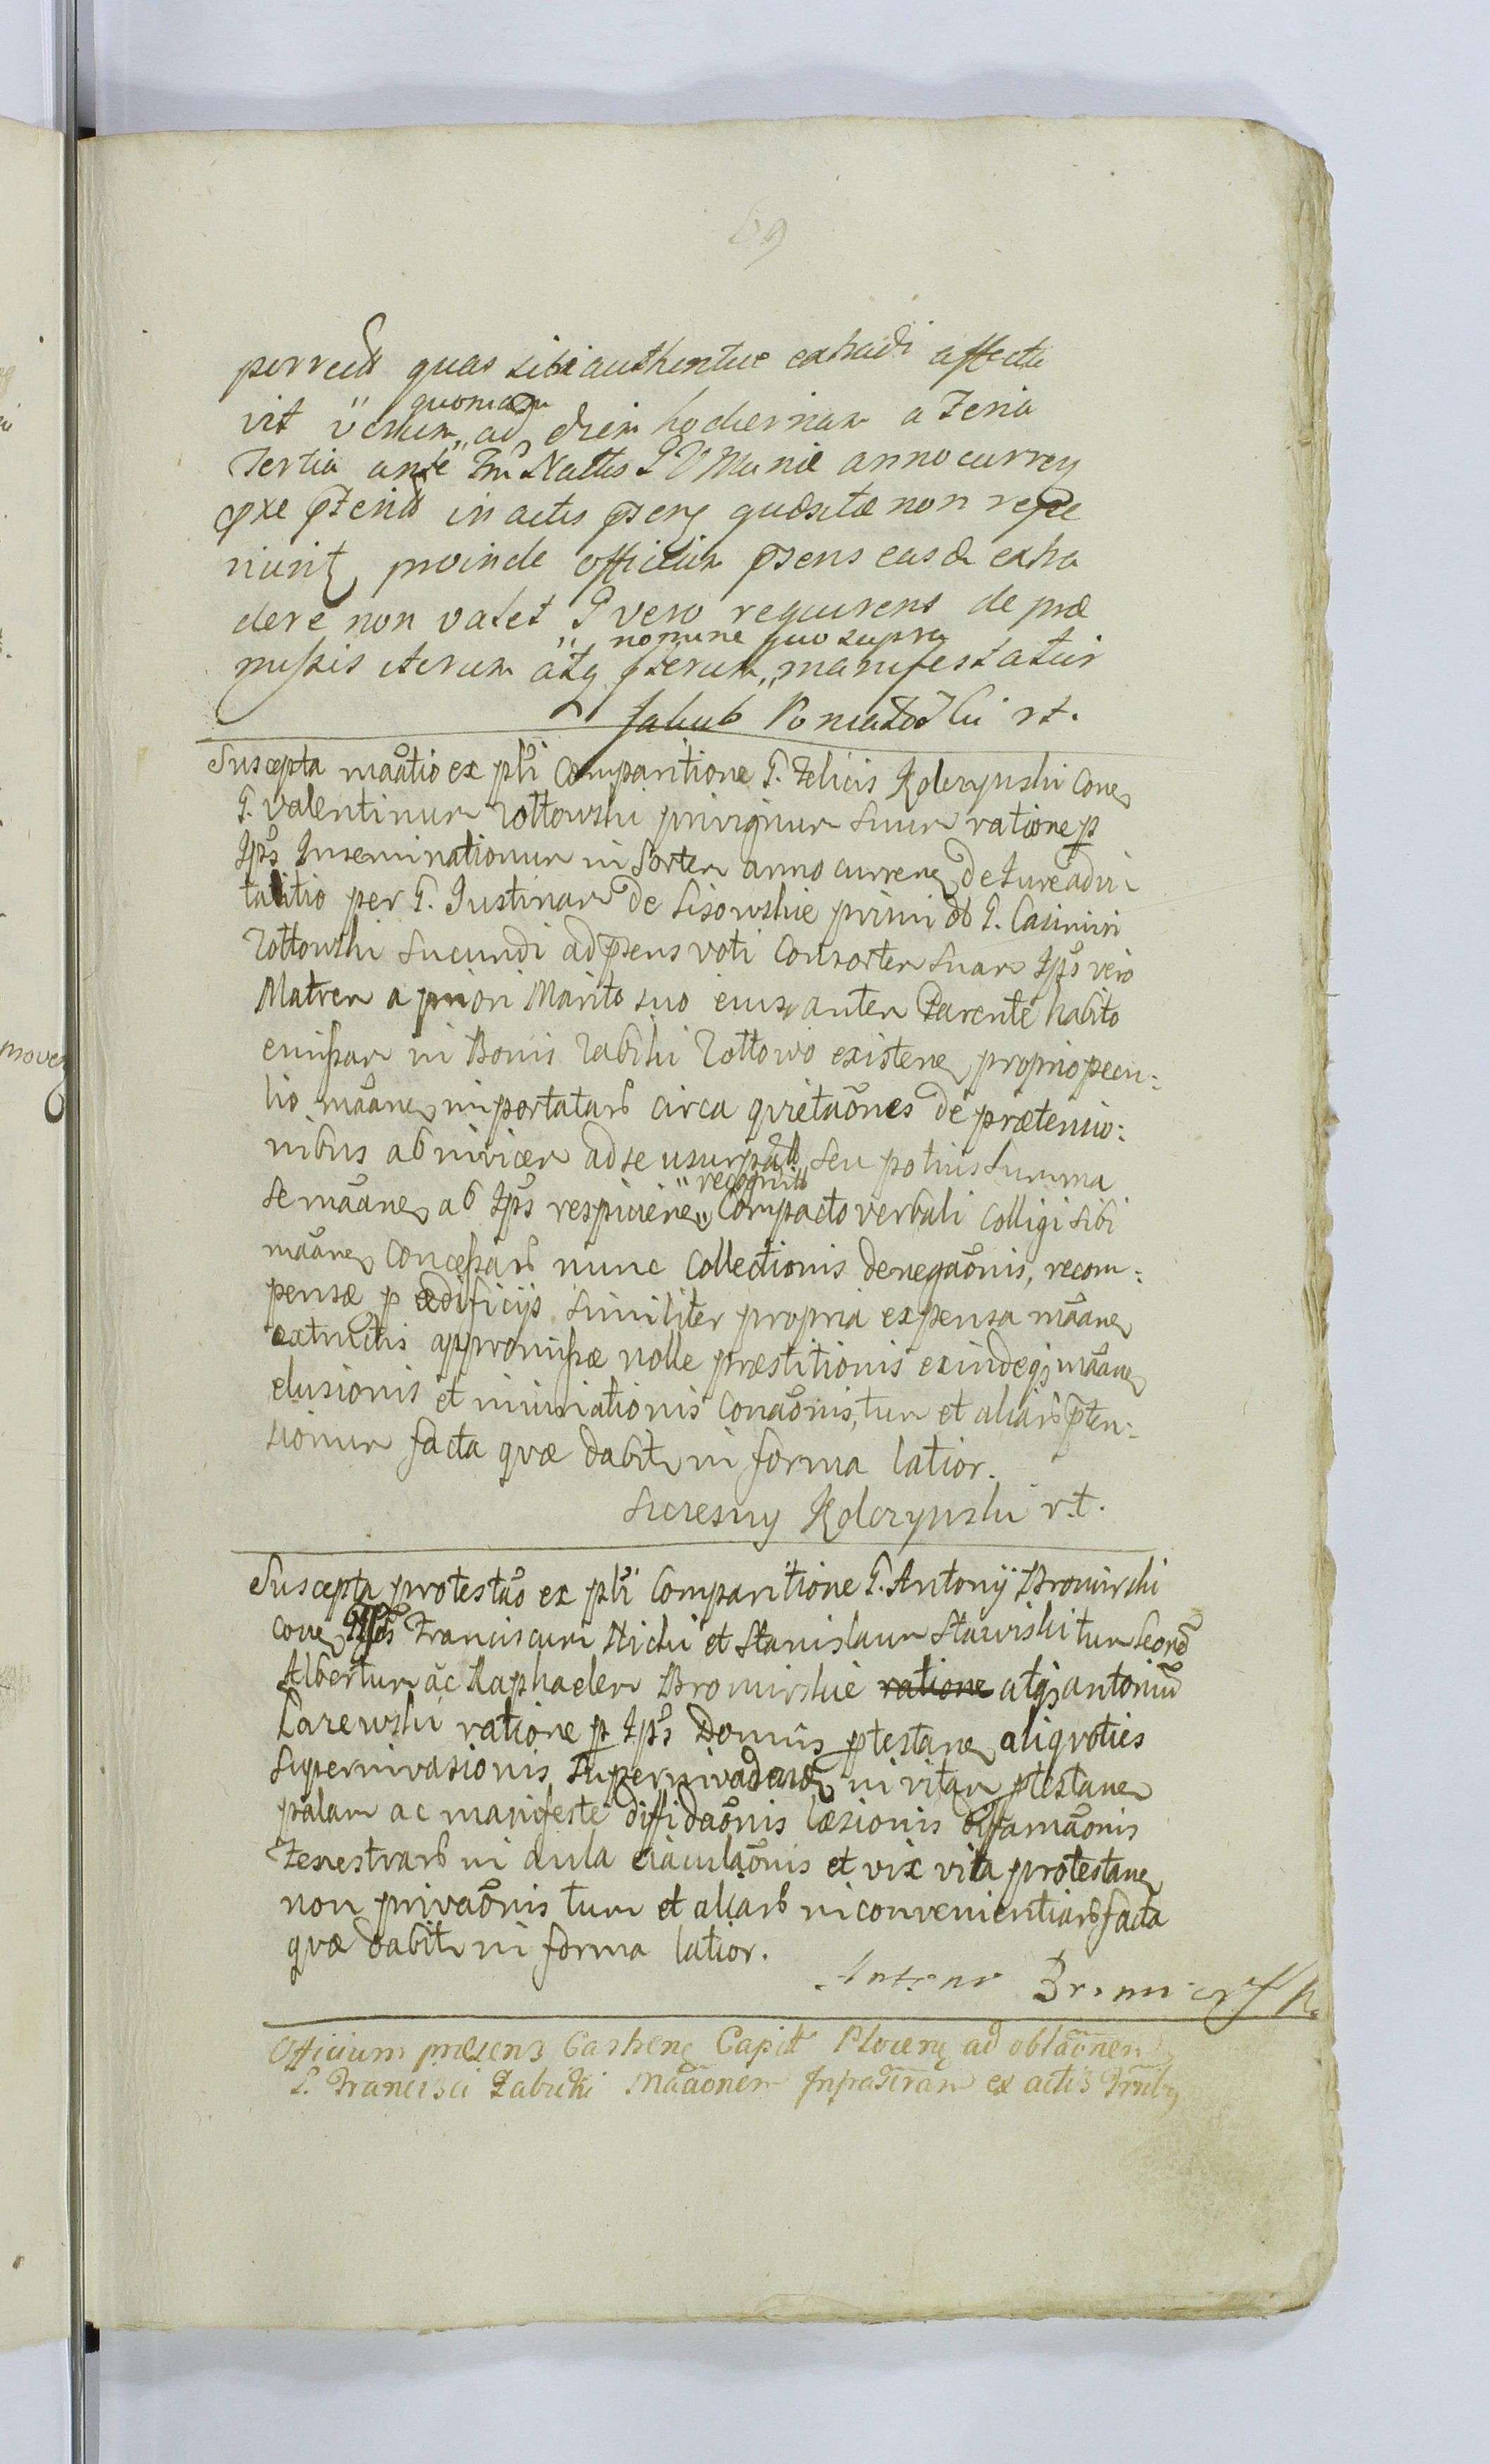 69
quas sibi authentice extradi affecta
vit verum quoniam ad diem hodiernam a Feria
Tertia ante Nattis V Mariæ anno curren
in actis quæsitæ non repe
riunt, proinde officium psens easd extra
dere non valet G vero requirens de præ
missis iterum atq iterum nomine quo supra manifestatur
Jakub rt.
Suscepta maatio ex pli Comparitione G. Felicis Kolczynski Cone
G. Valentinum Zottowski privignum Suum ratione p
Ips Inseminationum in Sortem anno curren de Jure advi
talitio per G. Justinam de Lisowskie primi ob G. Casimiri
Zottowski Secundi ad psens voti Consortem Suam Ips vero
Matrem a priori Marito suo eius autem Parente habito
emissam in Bonis Zabiki Zottowo existen proprio pecu:
lio maanen importatarb circa quietaones de prætensio:
nibus ab invicem ad se usurpatis Seu potius Summa
se maanen ab Ips respicien recognit Compacto verbali Colligi sibi
maanen Concessarb nunc Collectionis denegaonis, recom:
pensæ p ædificijs Similiter propria expensa maanen
extructis appromissæ nolle præstitionis exindeq maanen
elusionis et iniuriationis Conaonis, tum et aliarb pten:
sionum facta quæ dabit in forma latior.
Szczesny Kolczynski r.t.
Suscepta protestao ex pli Comparitione G. Antonij Bromirski
Cone Ips Franciscum et Stanislaum Stawiski tum
Albertum ac Raphaelem Bromirskie ratione atq antonium
Larewski ratione p Ips Domus ptestanen aliquoties
Superinvasionis Superinvadend in vitam ptestanen
palam ac manifeste diffidaonis læsionis diffamaonis
Fenestrarb in aula eiaculaonis et vix vita protestanen
non privaonis tum et aliarb inconvenientiarb facta
quæ dabit in forma latior.
Antoni Bromirski
Officium præsens Castren Capit Plocen ad oblaonem
G. Francisci Zabicki Maaonem Infrascram ex actis